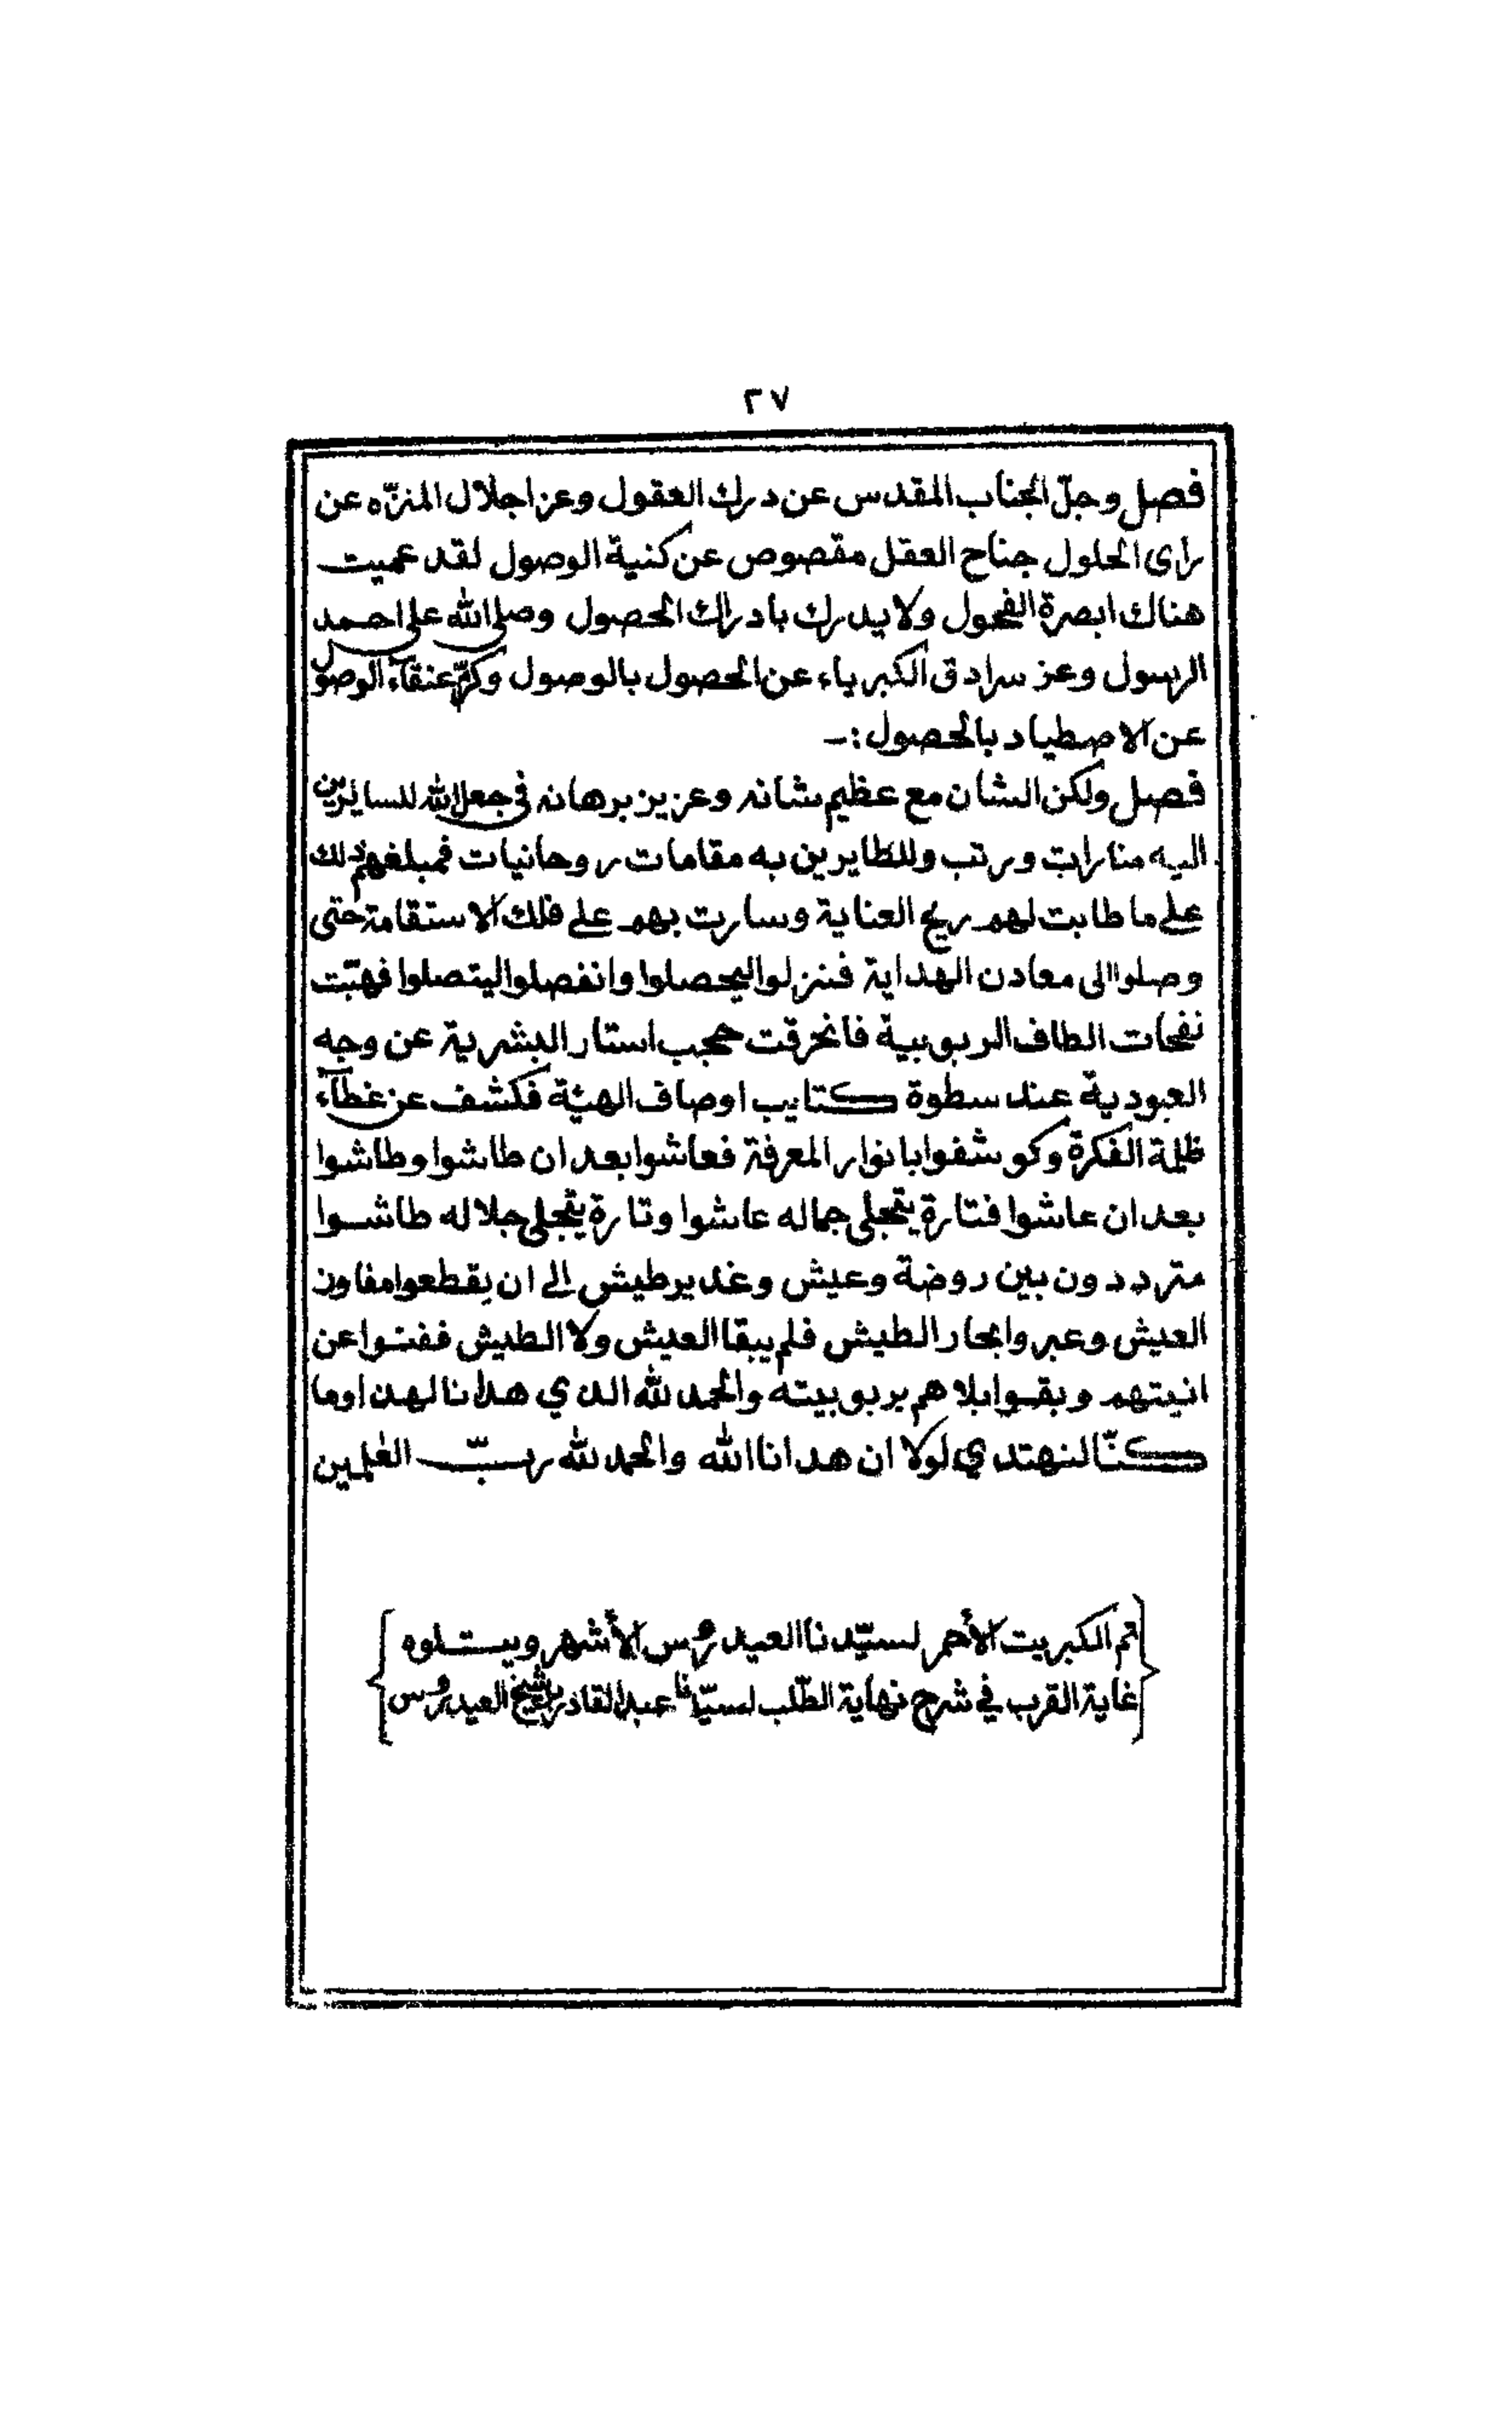 ٢٧
فصل وجلّ الجناب المقدس عن درك العقول وعز اجلال المنزّه عن
رأى الحلول جناح العقل مقصوص عن كنية الوصول لقد عميت
هناك ابصرة الفحول ولا يدرك بادراك الحصول وصلى الله على احمد
الرسول وعز سرادق الكبرياء عن الحصول بالوصول وكرّ عنقآء الوصول
عن الاصطياد بالحصول :ـ
فصل ولكن الشان مع عظيم شانه وعزيز برهانه في جعل الله للسايرين
اليه منارات ورتب وللطايرين به مقامات روحانيات فمبلغهم ذلك
على ما طابت لهم ريح العناية وسارت بهم على فلك الاستقامة حتى
وصلوا الى معادن الهداية فنزلوا ليحصلوا وانفصلوا ليتصلوا فهبّت
نفحات الطاف الربوبية فانخرقت حجب استار البشرية عن وجه
العبودية عند سطوة كتايب اوصاف الهيّة فكشف عن غطآء
ظلمة الفكرة وكوشفوا بانوار المعرفة فعاشوا بعد ان طاشوا وطاشوا
بعد ان عاشوا فتارة يتجلى جماله عاشوا وتارة يتجلى جلاله طاشوا
مترددون بين روضة وعيش وغدير طيش الى ان يقطعوا مفاوز
العيش وعبروا بحار الطيش فلم يبقا العيش ولا الطيش ففنوا عن
انيتهم وبقوا بلاهم بربوبيته والحمد لله الذي هدانا لهذا وما
كنّا لنهتدي لولا ان هدانا الله والحمد لله ربّ العٰلمين
{تم الكبريت الأحمر لسيّدنا العيدرُوس الأشهر ويتلوه
غاية القرب في شرح نهاية الطّلب لسيّدنا عبد القادر بن شيخ العيدرُوس}